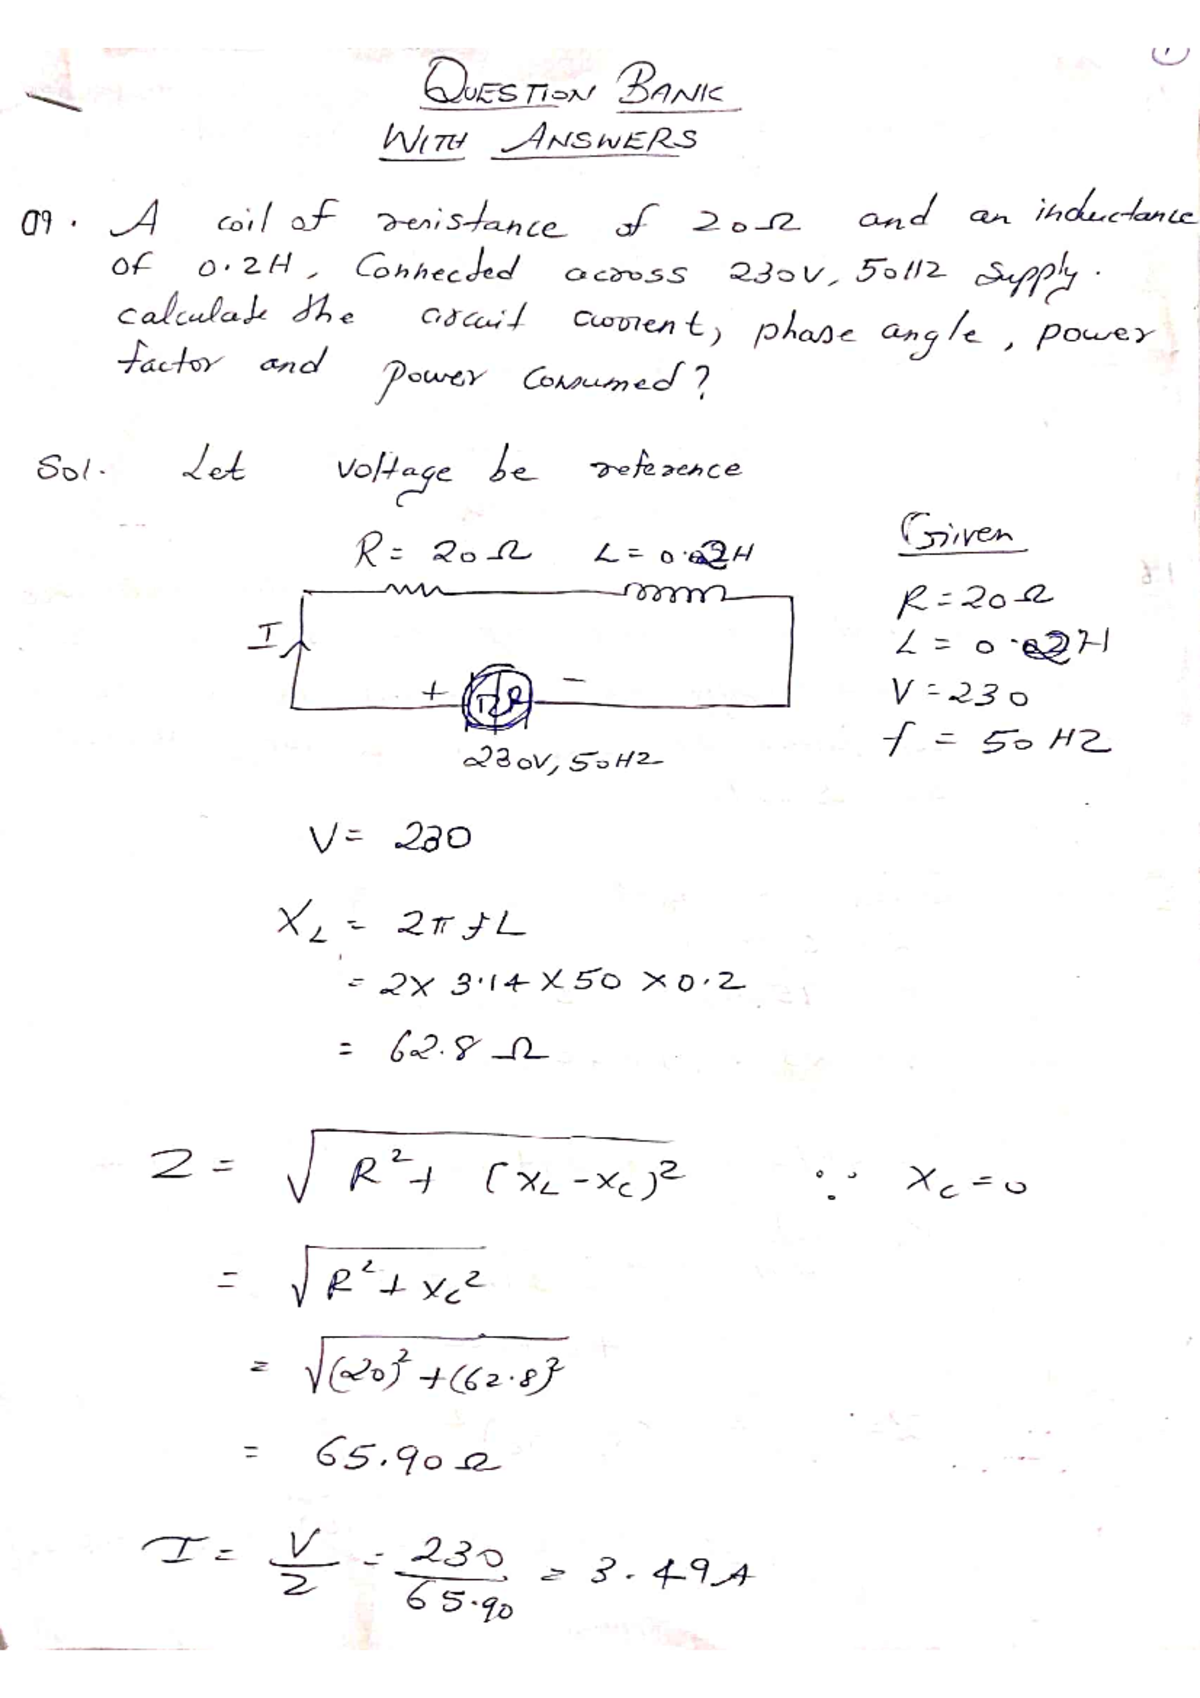 QUESTION BANK
WITH ANSWERS
09. A coil of resistance of 20Ω and an inductance
of 0.2H, Connected across 230V, 50HZ Supply.
calculate the circuit current, phase angle, power
factor and power consumed?
Sol. Let voltage be reference
Given
R = 20Ω L = 0.2H
R = 20Ω
I
L = 0.2H
+ -
V = 230
230V, 50HZ
f = 50HZ
V = 230
X_L = 2πfL
= 2 X 3.14 X 50 X 0.2
= 62.8 Ω
Z = √R²+ (X_L - X_C)² ∵ X_C = 0
= √R² + X_C²
= √(20)² + (62.8)²
= 65.90 Ω
I = V/Z = 230/65.90 = 3.49A